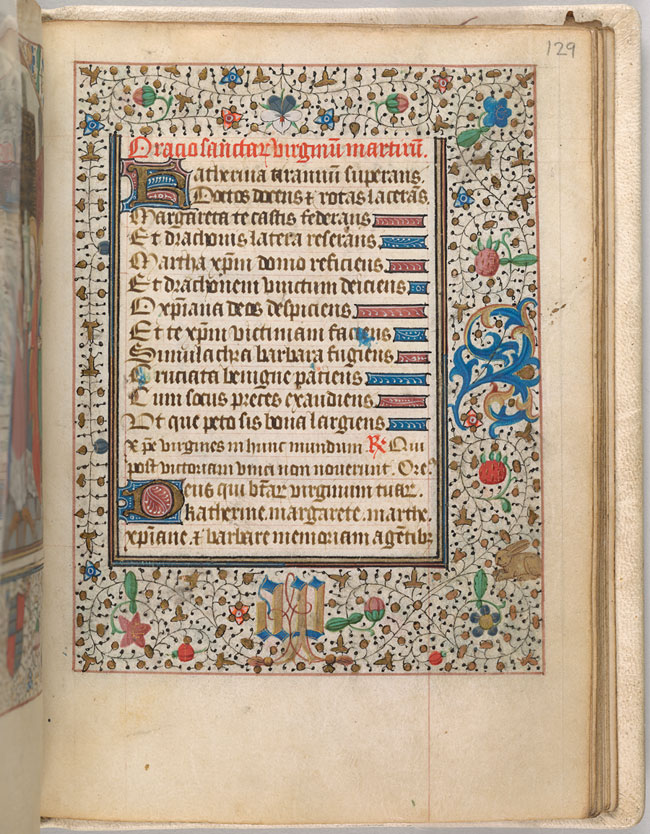 129
Oracio sanctar virginū martirū.
Katherina tirannū superans.
Doctos docens ⁊ rotas lacerans.
Margareta te castis federans
Et drachonis latera reserans
Martha xp̄m domo reficiens
Et drachonem vinctum deiciens
O xp̄iana deos despiciens
Et te xp̄m victimam faciens
Simulachra barbara fugiens
Cruciata benigne paciens
Cum socus preces exaudiens
Vt que peto sis bona largiens
Xp̄e virgines in hunc mundum ℟ Qui
post victoriam vinci non noverunt. Ore
Deus qui btar̄ virginum tuar̄.
katherine. margarete. marthe.
xp̄iane. ⁊ barbare memoriam agētibꝫ